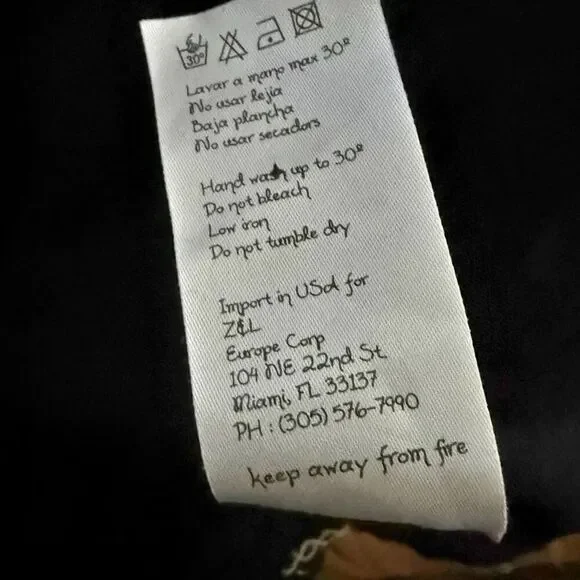 30º
Lavar a mano max 30º
No usar lejia
Baja plancha
No usar secadors
Hand wash up to 30º
Do not bleach
Low iron
Do not tumble dry
Import in USA for
Z&L
Europe Corp
104 NE 22nd St.
Miami, FL 33137
PH : (305) 576-7990
keep away from fire